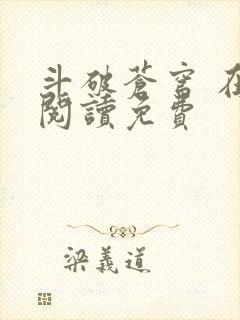 斗破蒼穹
閱讀免費
梁義道